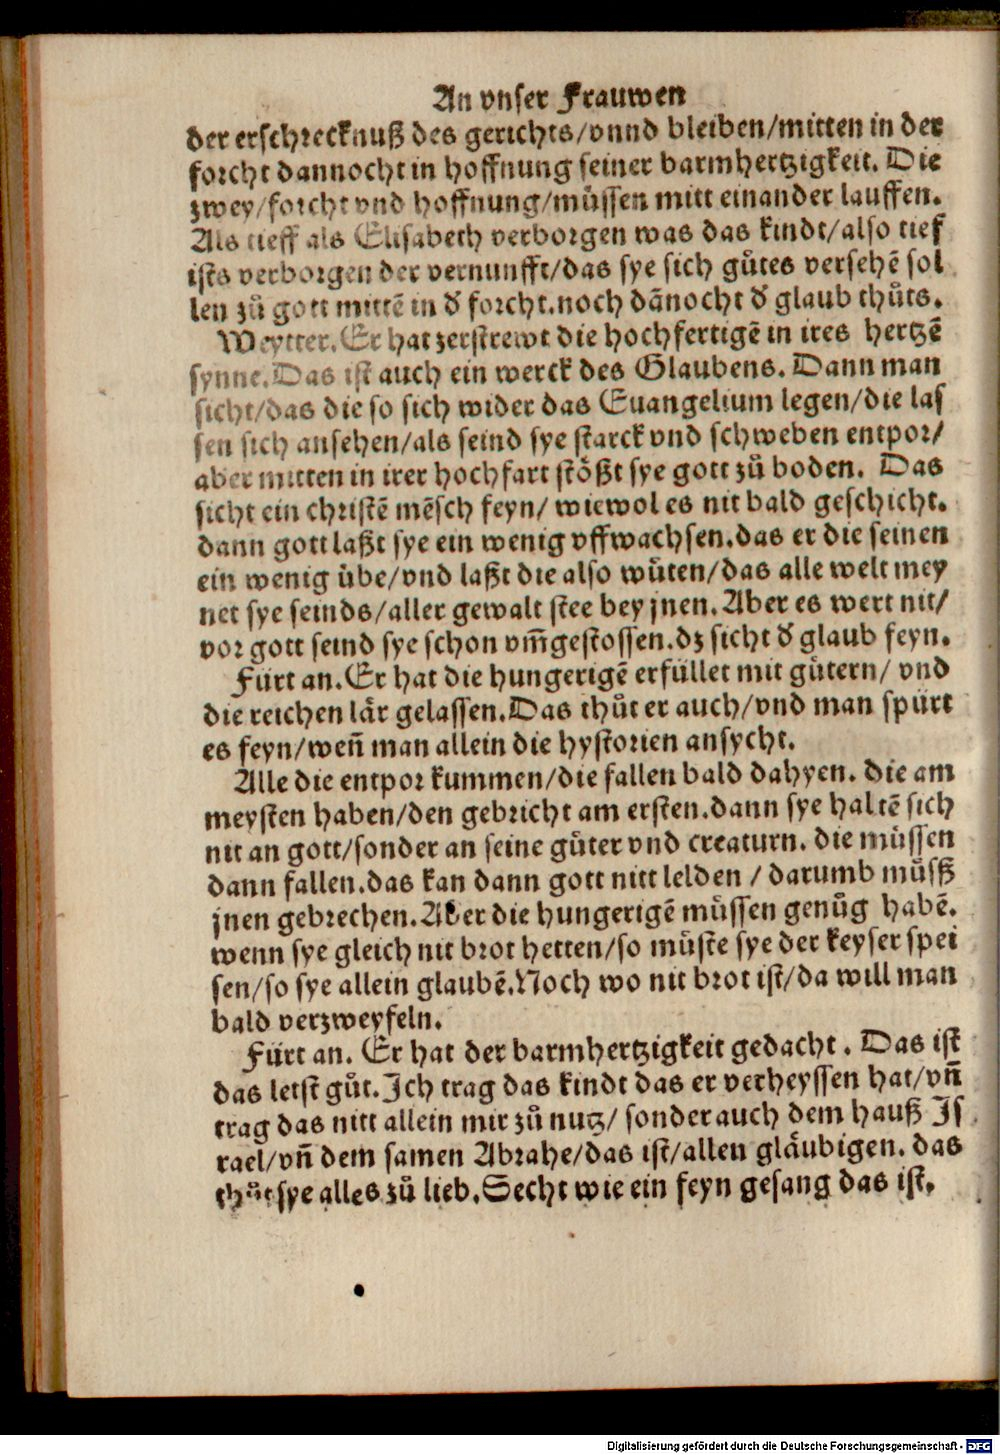 An vnser Frauwen
der erschrecknuß des gerichts/vnnd bleiben/mitten in der
forcht dannocht in hoffnung seiner barmhertzigkeit. Die
zwey/forcht vnd hoffnung/müssen mitt einander lauffen.
Als tieff als Elisabeth verborgen was das kindt/also tief
ists verborgen der vernunfft/das sye sich gůtes versehē sol
len zů gott mittē in d' forcht.noch dānocht d' glaub thůts.
Weytter.Er hat zerstrewt die hochfertigē in ires hertzē
synne.Das ist auch ein werck des Glaubens. Dann man
sicht/das die so sich wider das Euangelium legen/die las
sen sich ansehen/als seind sye starck vnd schweben entpor/
aber mitten in irer hochfart stößt sye gott zů boden. Das
sicht ein christē mēsch feyn/ wiewol es nit bald geschicht.
dann gott laßt sye ein wenig vffwachsen.das er die seinen
ein wenig übe/vnd laßt die also wůten/das alle welt mey
net sye seinds/aller gewalt stee bey jnen.Aber es wert nit/
vor gott seind sye schon vm̄gestossen.dz sicht d' glaub feyn.
Fürt an.Er hat die hungerigē erfüllet mit gůtern/ vnd
die reichen lår gelassen.Das thůt er auch/vnd man spürt
es feyn/weñ man allein die hystorien ansycht.
Alle die entpor kummen/die fallen bald dahyen. die am
meysten haben/den gebricht am ersten.dann sye haltē sich
nit an gott/sonder an seine gůter vnd creaturn. die müssen
dann fallen.das kan dann gott nitt leiden / darumb můſß
jnen gebrechen.Aber die hungerigē müssen genůg habē.
wenn sye gleich nit brot hetten/so müste sye der keyser spei
sen/so sye allein glaubē.Noch wo nit brot ist/da will man
bald verzweyfeln.
Fürt an. Er hat der barmhertzigkeit gedacht . Das ist
das letst gůt.Ich trag das kindt das er verheyssen hat/vñ
trag das nitt allein mir zů nutz/ sonder auch dem hauß Is
rael/vñ dem samen Abrahe/das ist/allen gläubigen. das
thůt sye alles zů lieb.Secht wie ein feyn gesang das ist.
Digitalisierung gefördert durch die Deutsche Forschungsgemeinschaft - DFG